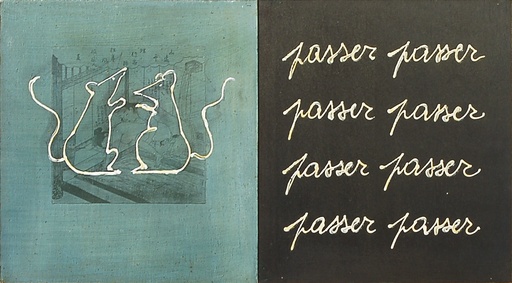 passer passer
passer passer
passer passer
passer passer